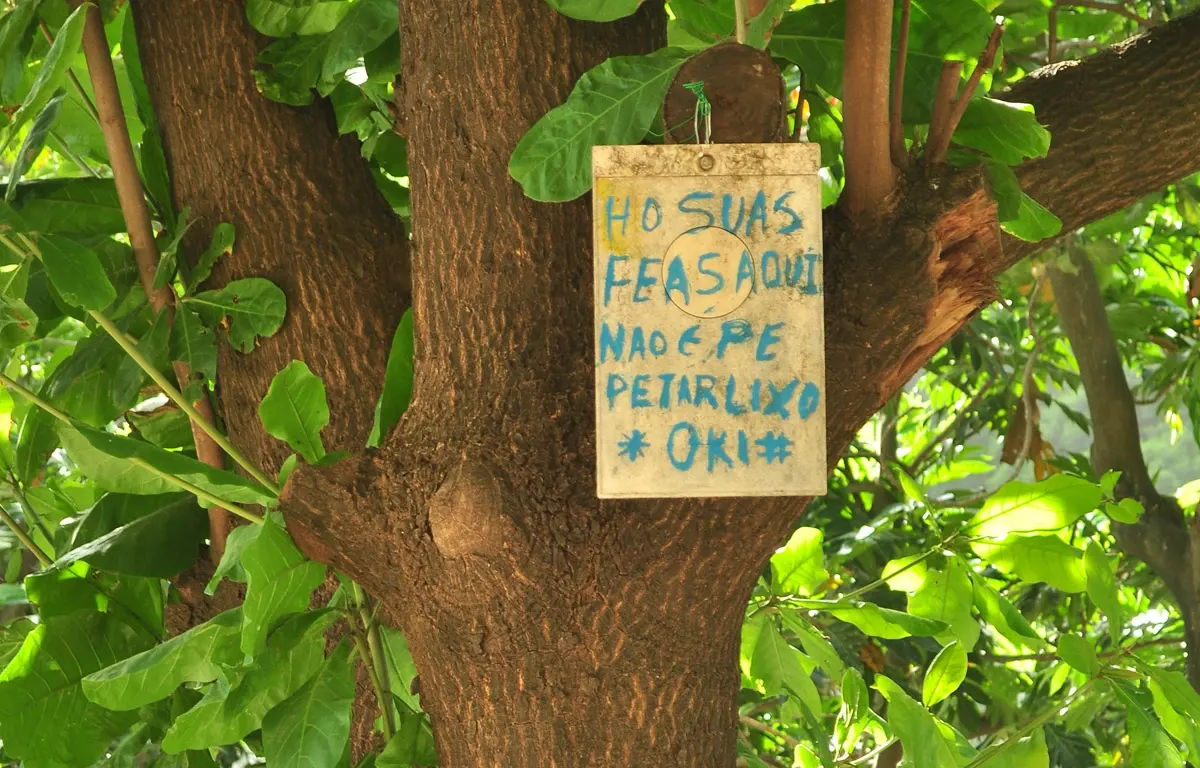 HO SUAS
FEAS AQUI
NAO É PE
PETAR LIXO
* OKI #